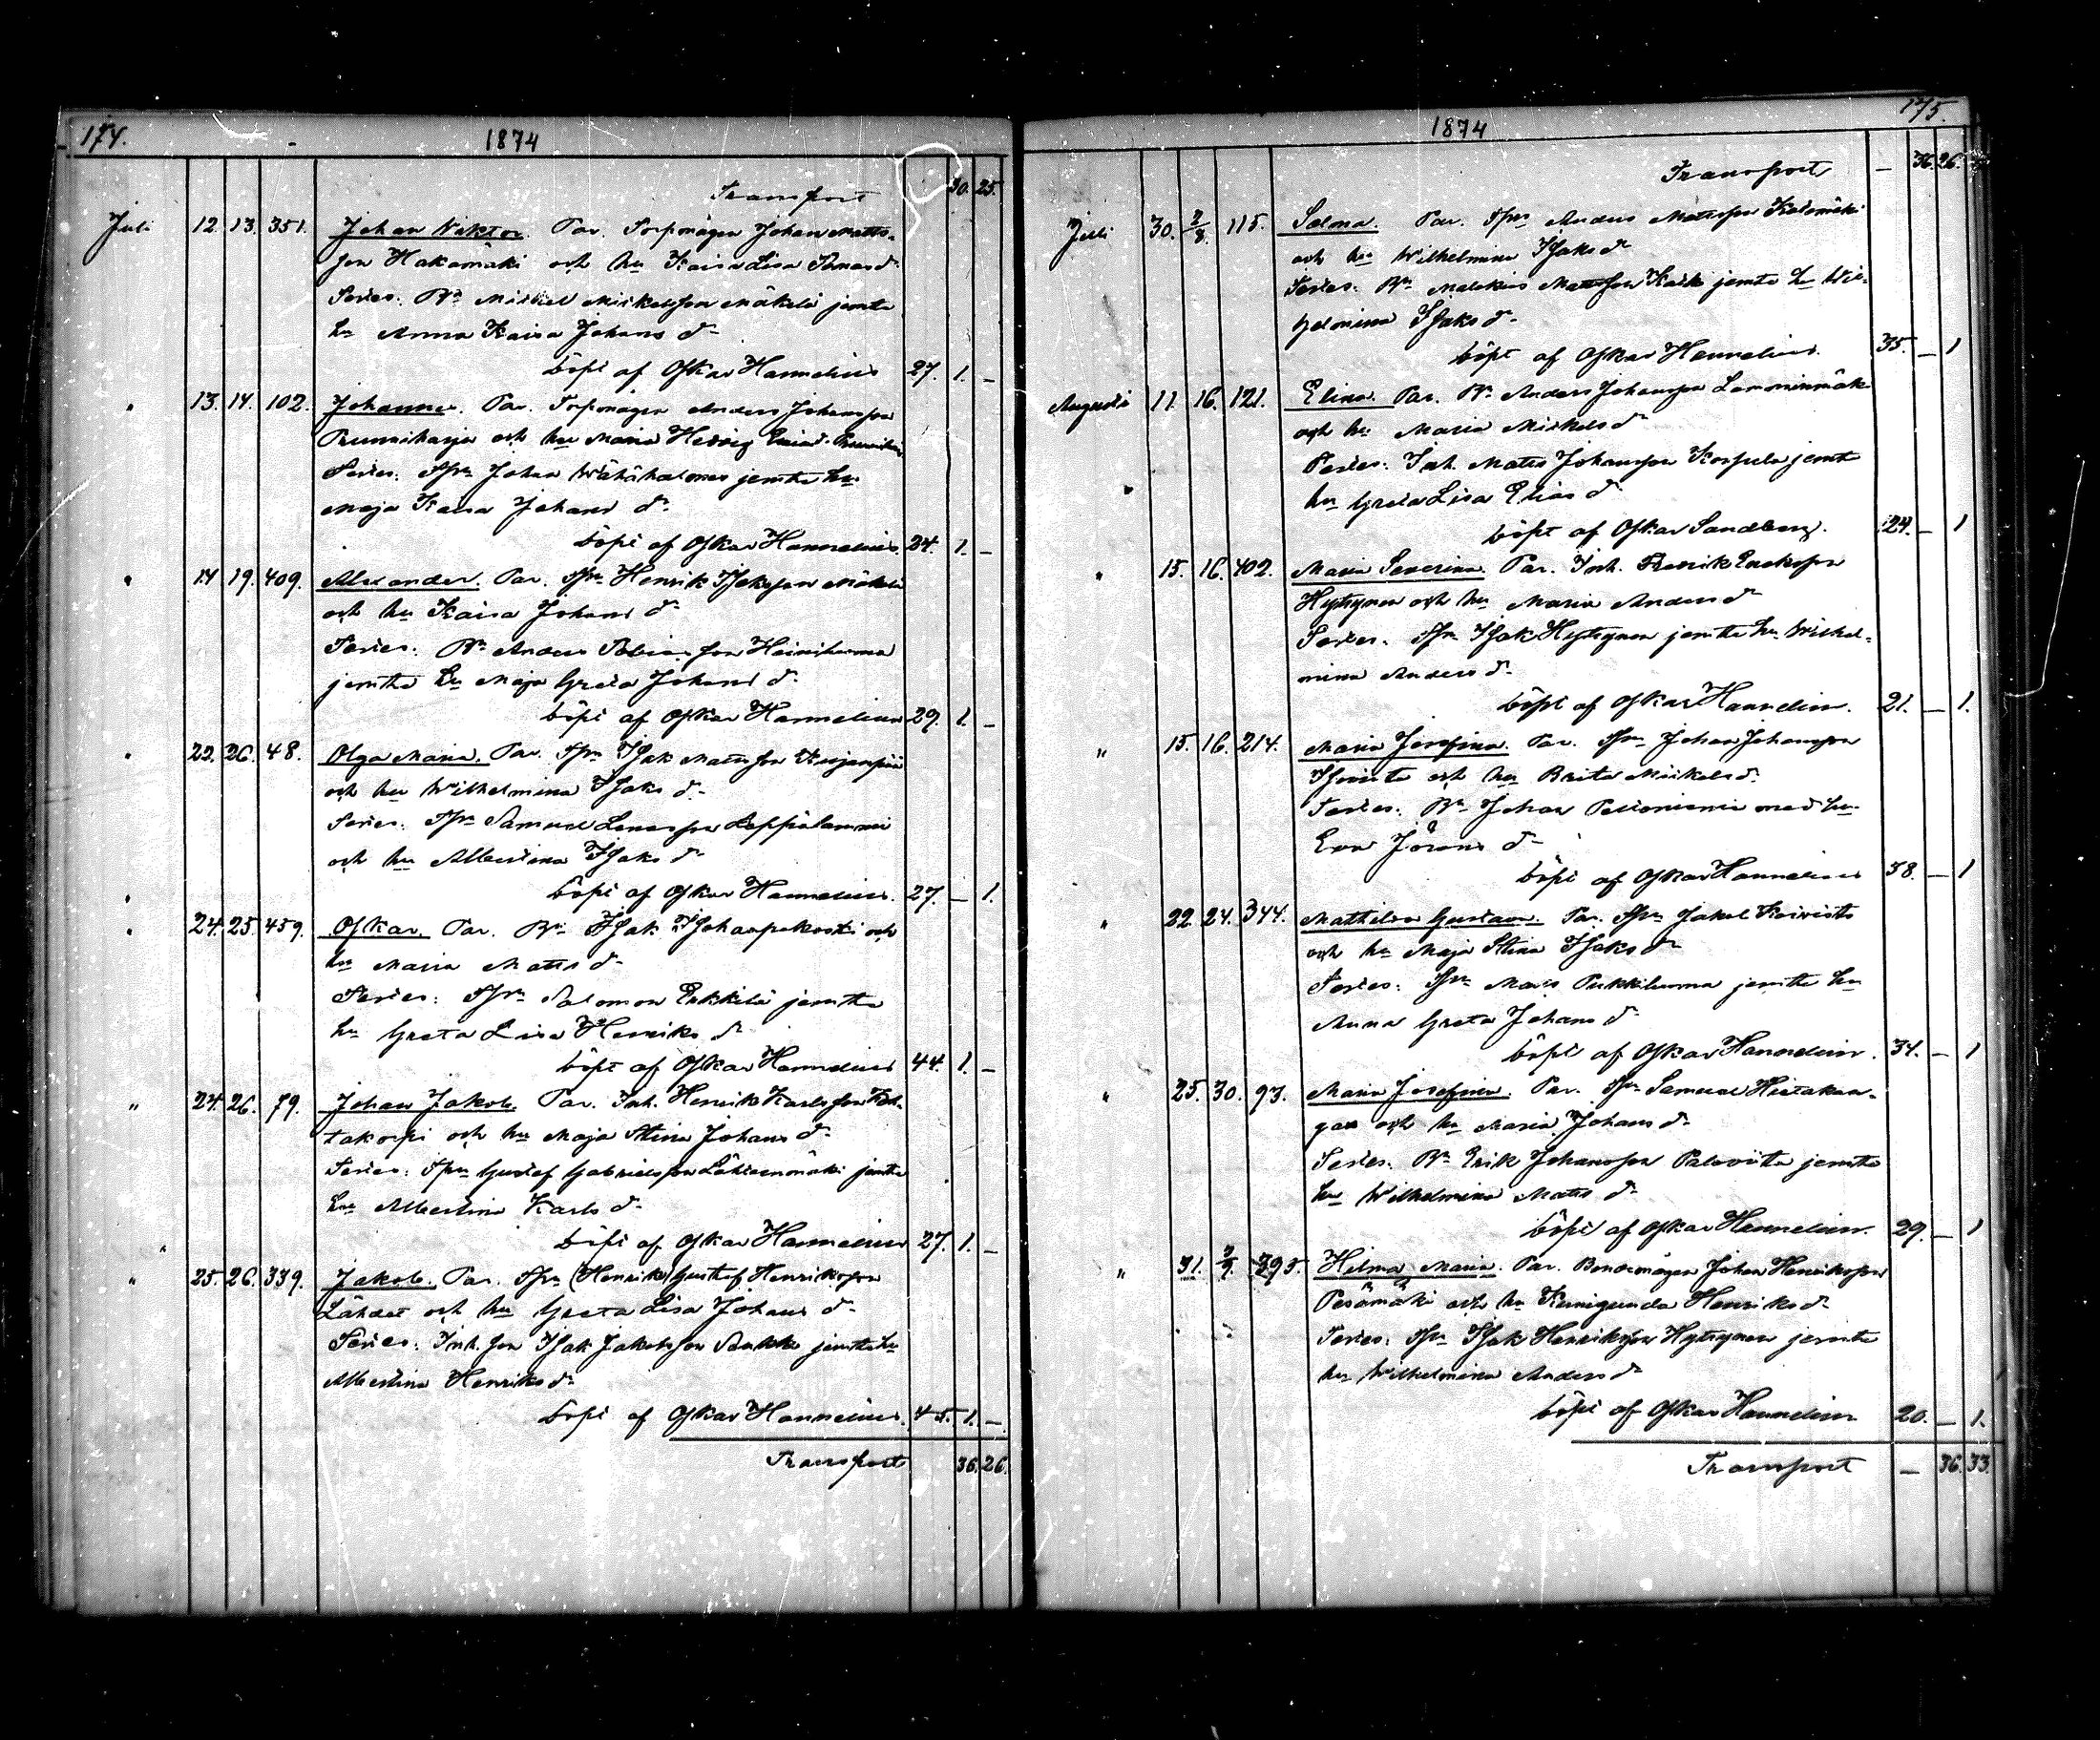 174.
1874
Transport 30. 25.
Juli 12. 13. 351. Johan Viktor. Par. Torpmågen Johan Matts-
son Hakomäki och hu Kaisa Lisa
Testes: Bn Mickel Mickelsson Mäkelä jemte
hu Anna Kaisa Johans dr
döpt af Oskar Hannelius 27. 1. –
" 13. 14. 102. Johanna. Par. Torpmågen Anders Johansson
och hu Maria Hedvig
Testes: Spm Johan Wähähalmes jemte hu
Maja Kaisa Johans dr
döpt af Oskar Hannelius 24. 1. –
" 14 19. 409. Alexander. Par. Spm Henrik Isaksson Mäkelä
och hu Kaisa Johans dr
Testes: Bn Anders Tobiasson Heiniluoma
jemte hu Maja Greta Johans dr
döpt af Oskar Hannelius 29. 1. –
" 22. 26. 48. Olga Maria. Par. Spm Isak Mattsson
och hu Wilhelmina Isaks dr
Testes: Spm Samuel Leppälammi
och hu Albertina Isaks dr
döpt af Oskar Hannelius. 27. – 1.
" 24. 25. 459. Oskar. Par. Bn Isak och
hu Maria Matts dr
Testes: Spm Salomon Erkkilä jemte
hu Greta Lisa Henriks dr
döpt af Oskar Hannelius 44. 1. –
" 24. 26. 79. Johan Jakob. Par. Inh. Henrik Karlsson
takorpi och hu Maja Stina Johans dr
Testes: Spm Gustaf Gabrielsson Lähteenmäki jemte
hu Albertina Karls dr
döpt af Oskar Hannelius 27. 1. –
" 25. 26. 339. Jakob. Par. Spm (Henrik) Gustaf Henriksson
Lähdet och hu Greta Lisa Johans dr
Testes: Inh. son Isak Jakobsson jemte hu
Albertina Henriks dr
döpt af Oskar Hannelius. 45. 1. –
Transport 36. 26.
175.
1874
Transport – 36. 26.
Juli 30. 2/8. 115. Selma. Par. Spm Anders Mattsson
och hu Wilhelmina Isaks dr
Testes: Bn Malakias Mattsson jemte hu Wil-
helmina Isaks dr
döpt af Oskar Hannelius. 35. – 1
Augusti 11. 16. 121. Elina. Par. Bn Anders Johansson
och hu Maria Mickels dr
Testes: Inh. Matts Johansson Korpela jemte
hu Greta Lisa Elias dr
döpt af Oskar Sandberg. 24. – 1
" 15. 16. 402. Maria Severina. Par. Inh. Henrik
Hytynen och hu Maria Anders dr
Testes: Spm Isak Hytynen jemte hu Wilhel-
mina Anders dr
döpt af Oskar Hannelius. 21. – 1.
" 15. 16. 214. Maria Josefina. Par. Spm Johan Johansson
och hu Brita Mickels dr
Testes: Bn Johan Peltoniemi med hu
Eva Jörans dr
döpt af Oskar Hannelius 38. – 1
" 22. 24. 344. Mathilda Gustava. Par. Spm Jakob Koivisto
och hu Maja Stina Isaks dr
Testes: Spm Matts Pukkiluoma jemte hu
Anna Greta Johans dr
döpt af Oskar Hannelius. 34. – 1
" 25. 30. 93. Maria Josefina. Par. Spm Samuel Hietakan-
gas och hu Maria Johans dr
Testes: Bn Erik Johansson Paloviita jemte
hu Wilhelmina Matts dr
döpt af Oskar Hannelius. 29. – 1
" 31. 2/9. 393. Hilma Maria. Par. Bondemågen Johan Henriksson
Pesämäki och hu Kunigunda Henriks dr
Testes: Spm Isak Henriksson Hytynen jemte
hu Wilhelmina Anders dr
döpt af Oskar Hannelius 20. – 1.
Transport – 36. 33.